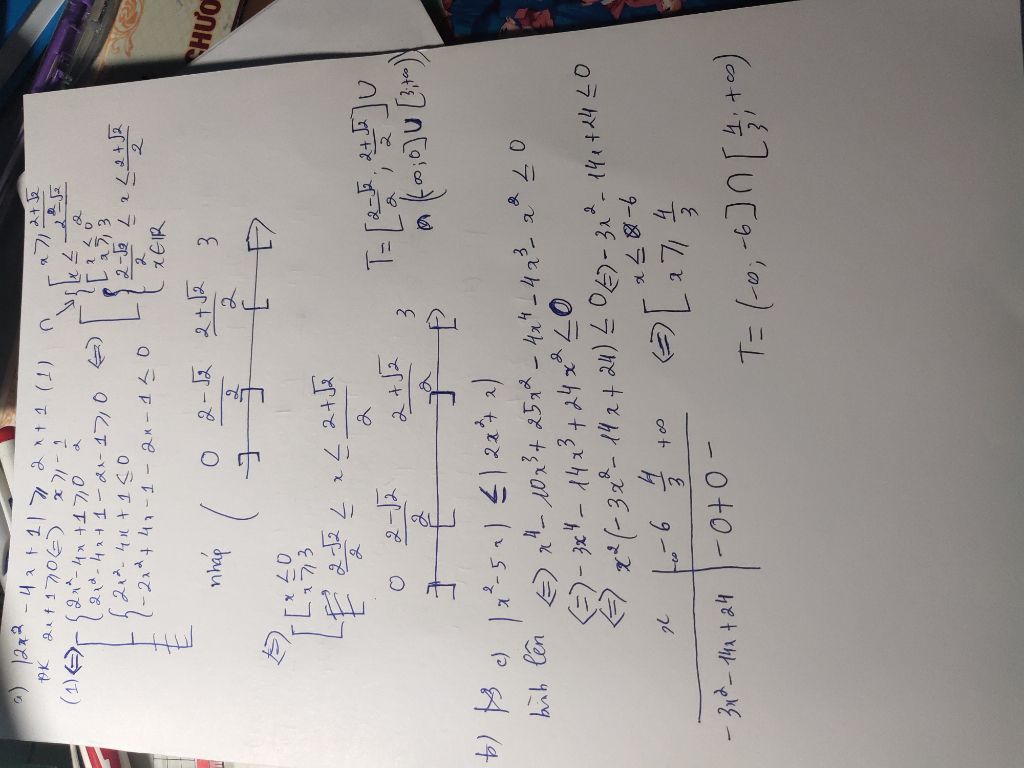 CHƯƠ
a) |2x² - 4x + 1| ⩾ 2x + 1 (1)
ĐK 2x + 1 ⩾ 0 (=) x ⩾ -1/2
(1) <=> [ { 2x² - 4x + 1 ⩾ 0
2x² - 4x + 1 - 2x - 1 ⩾ 0
{ 2x² - 4x + 1 ≤ 0
-2x² + 4x - 1 - 2x - 1 ≤ 0
<=> [ { [ x ⩾ (2+√2)/2
x ≤ (2-√2)/2
[ x ≤ 0
x ⩾ 3
{ (2-√2)/2 ≤ x ≤ (2+√2)/2
x ∈ ℝ
nháp ( 0 (2-√2)/2 (2+√2)/2 3
] ] [ [
<=> [ [ x ≤ 0
x ⩾ 3
(2-√2)/2 ≤ x ≤ (2+√2)/2
0 (2-√2)/2 (2+√2)/2 3
] [ ] [
T = [ (2-√2)/2 ; (2+√2)/2 ] ∪
(-∞; 0] ∪ [3; +∞)
b) c) |x² - 5x| ≤ |2x² + x|
bình lên (=) x⁴ - 10x³ + 25x² - 4x⁴ - 4x³ - x² ≤ 0
(=) -3x⁴ - 14x³ + 24x² ≤ 0
<=> x²(-3x² - 14x + 24) ≤ 0 (=) -3x² - 14x + 24 ≤ 0
x -∞ -6 4/3 +∞
-3x² - 14x + 24 - 0 + 0 -
(=) [ x ≤ -6
x ⩾ 4/3
T = (-∞; -6] ∩ [4/3; +∞)